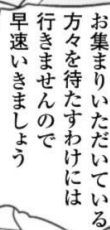 お集まりいただいている
方々を待たすわけには
行きませんので
早速いきましょう